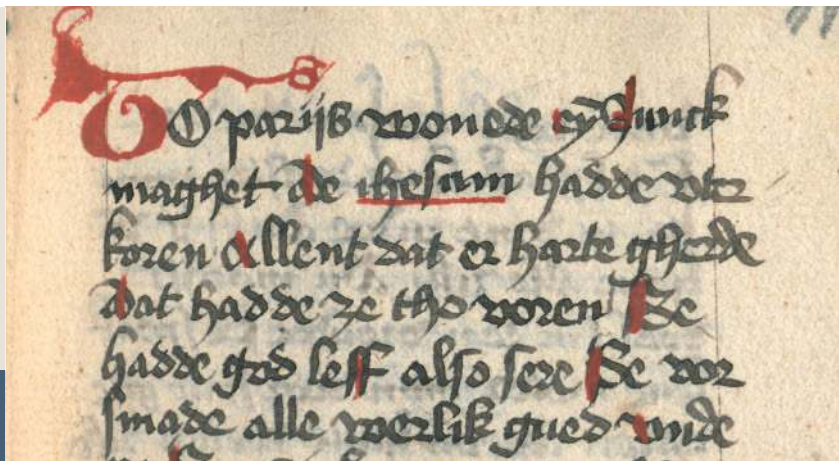 TO parijs wonede ey Junck
maghet De ihesum hadde vter
koren Allent dat er harte gherde
Dat hadde ze tho voren Se
hadde god leff also sere Se vor
smade alle werlik gued vnde